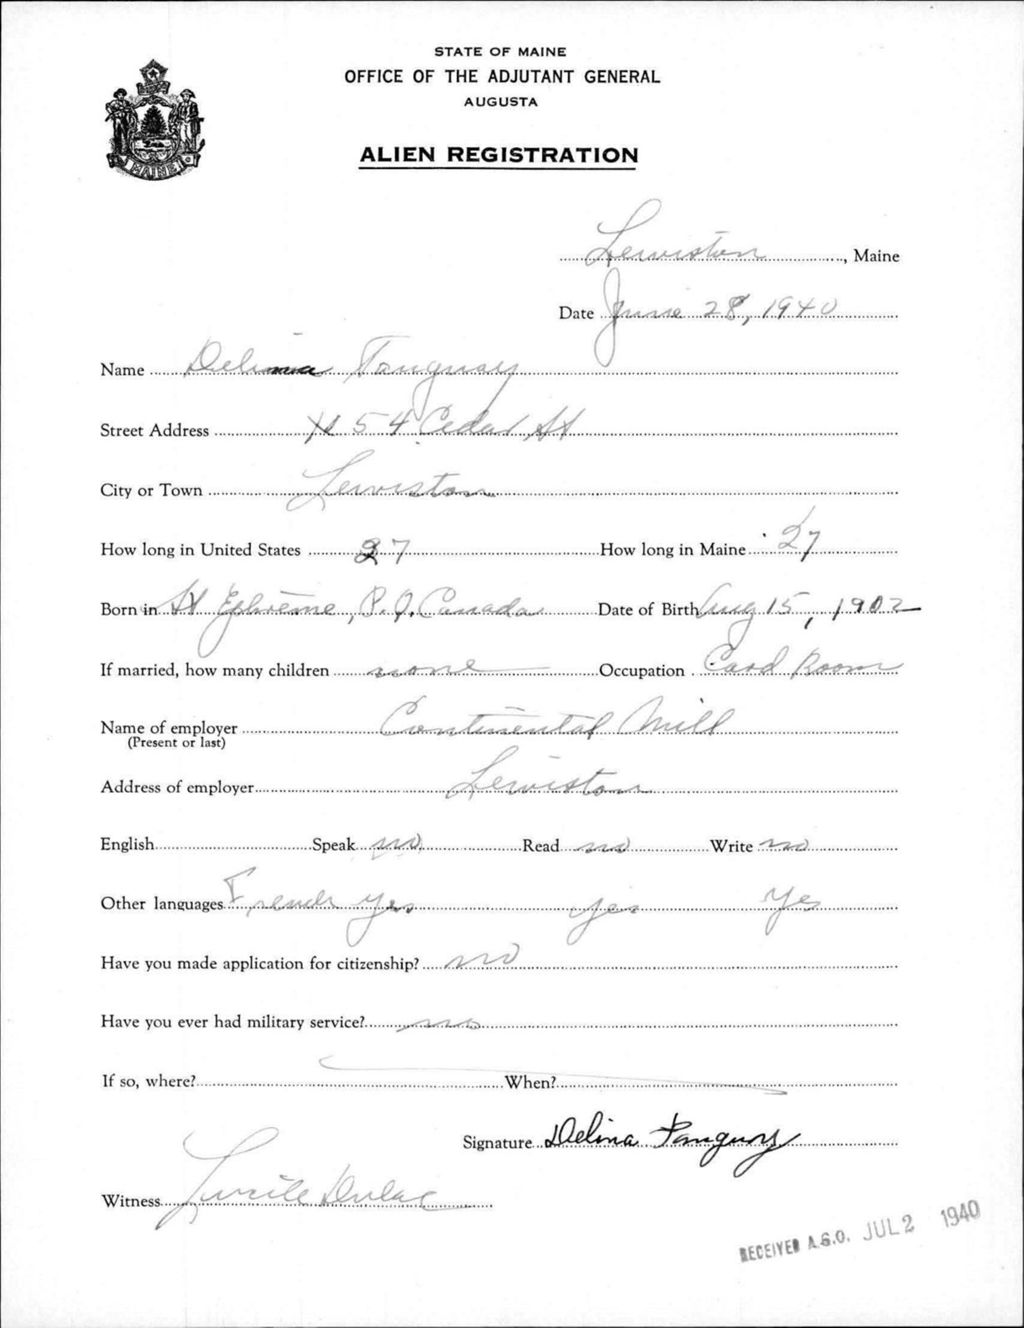 STATE OF MAINE
OFFICE OF THE ADJUTANT GENERAL
AUGUSTA
ALIEN REGISTRATION
MAINE
Lewiston, Maine
Date June 28, 1940
Name Delima Tanguay
Street Address 54 Cedar St
City or Town Lewiston
How long in United States 27 How long in Maine 27
Born in St Ephreme, P.Q. Canada Date of Birth Aug 15, 1902
If married, how many children none Occupation Card Room
Name of employer Continental Mill
(Present or last)
Address of employer Lewiston
English Speak no Read no Write no
Other languages French yes yes yes
Have you made application for citizenship? no
Have you ever had military service? no
If so, where? When?
Signature Delina Tanguay
Witness Lucile Dulac
RECEIVED A.G.O. JUL 2 1940